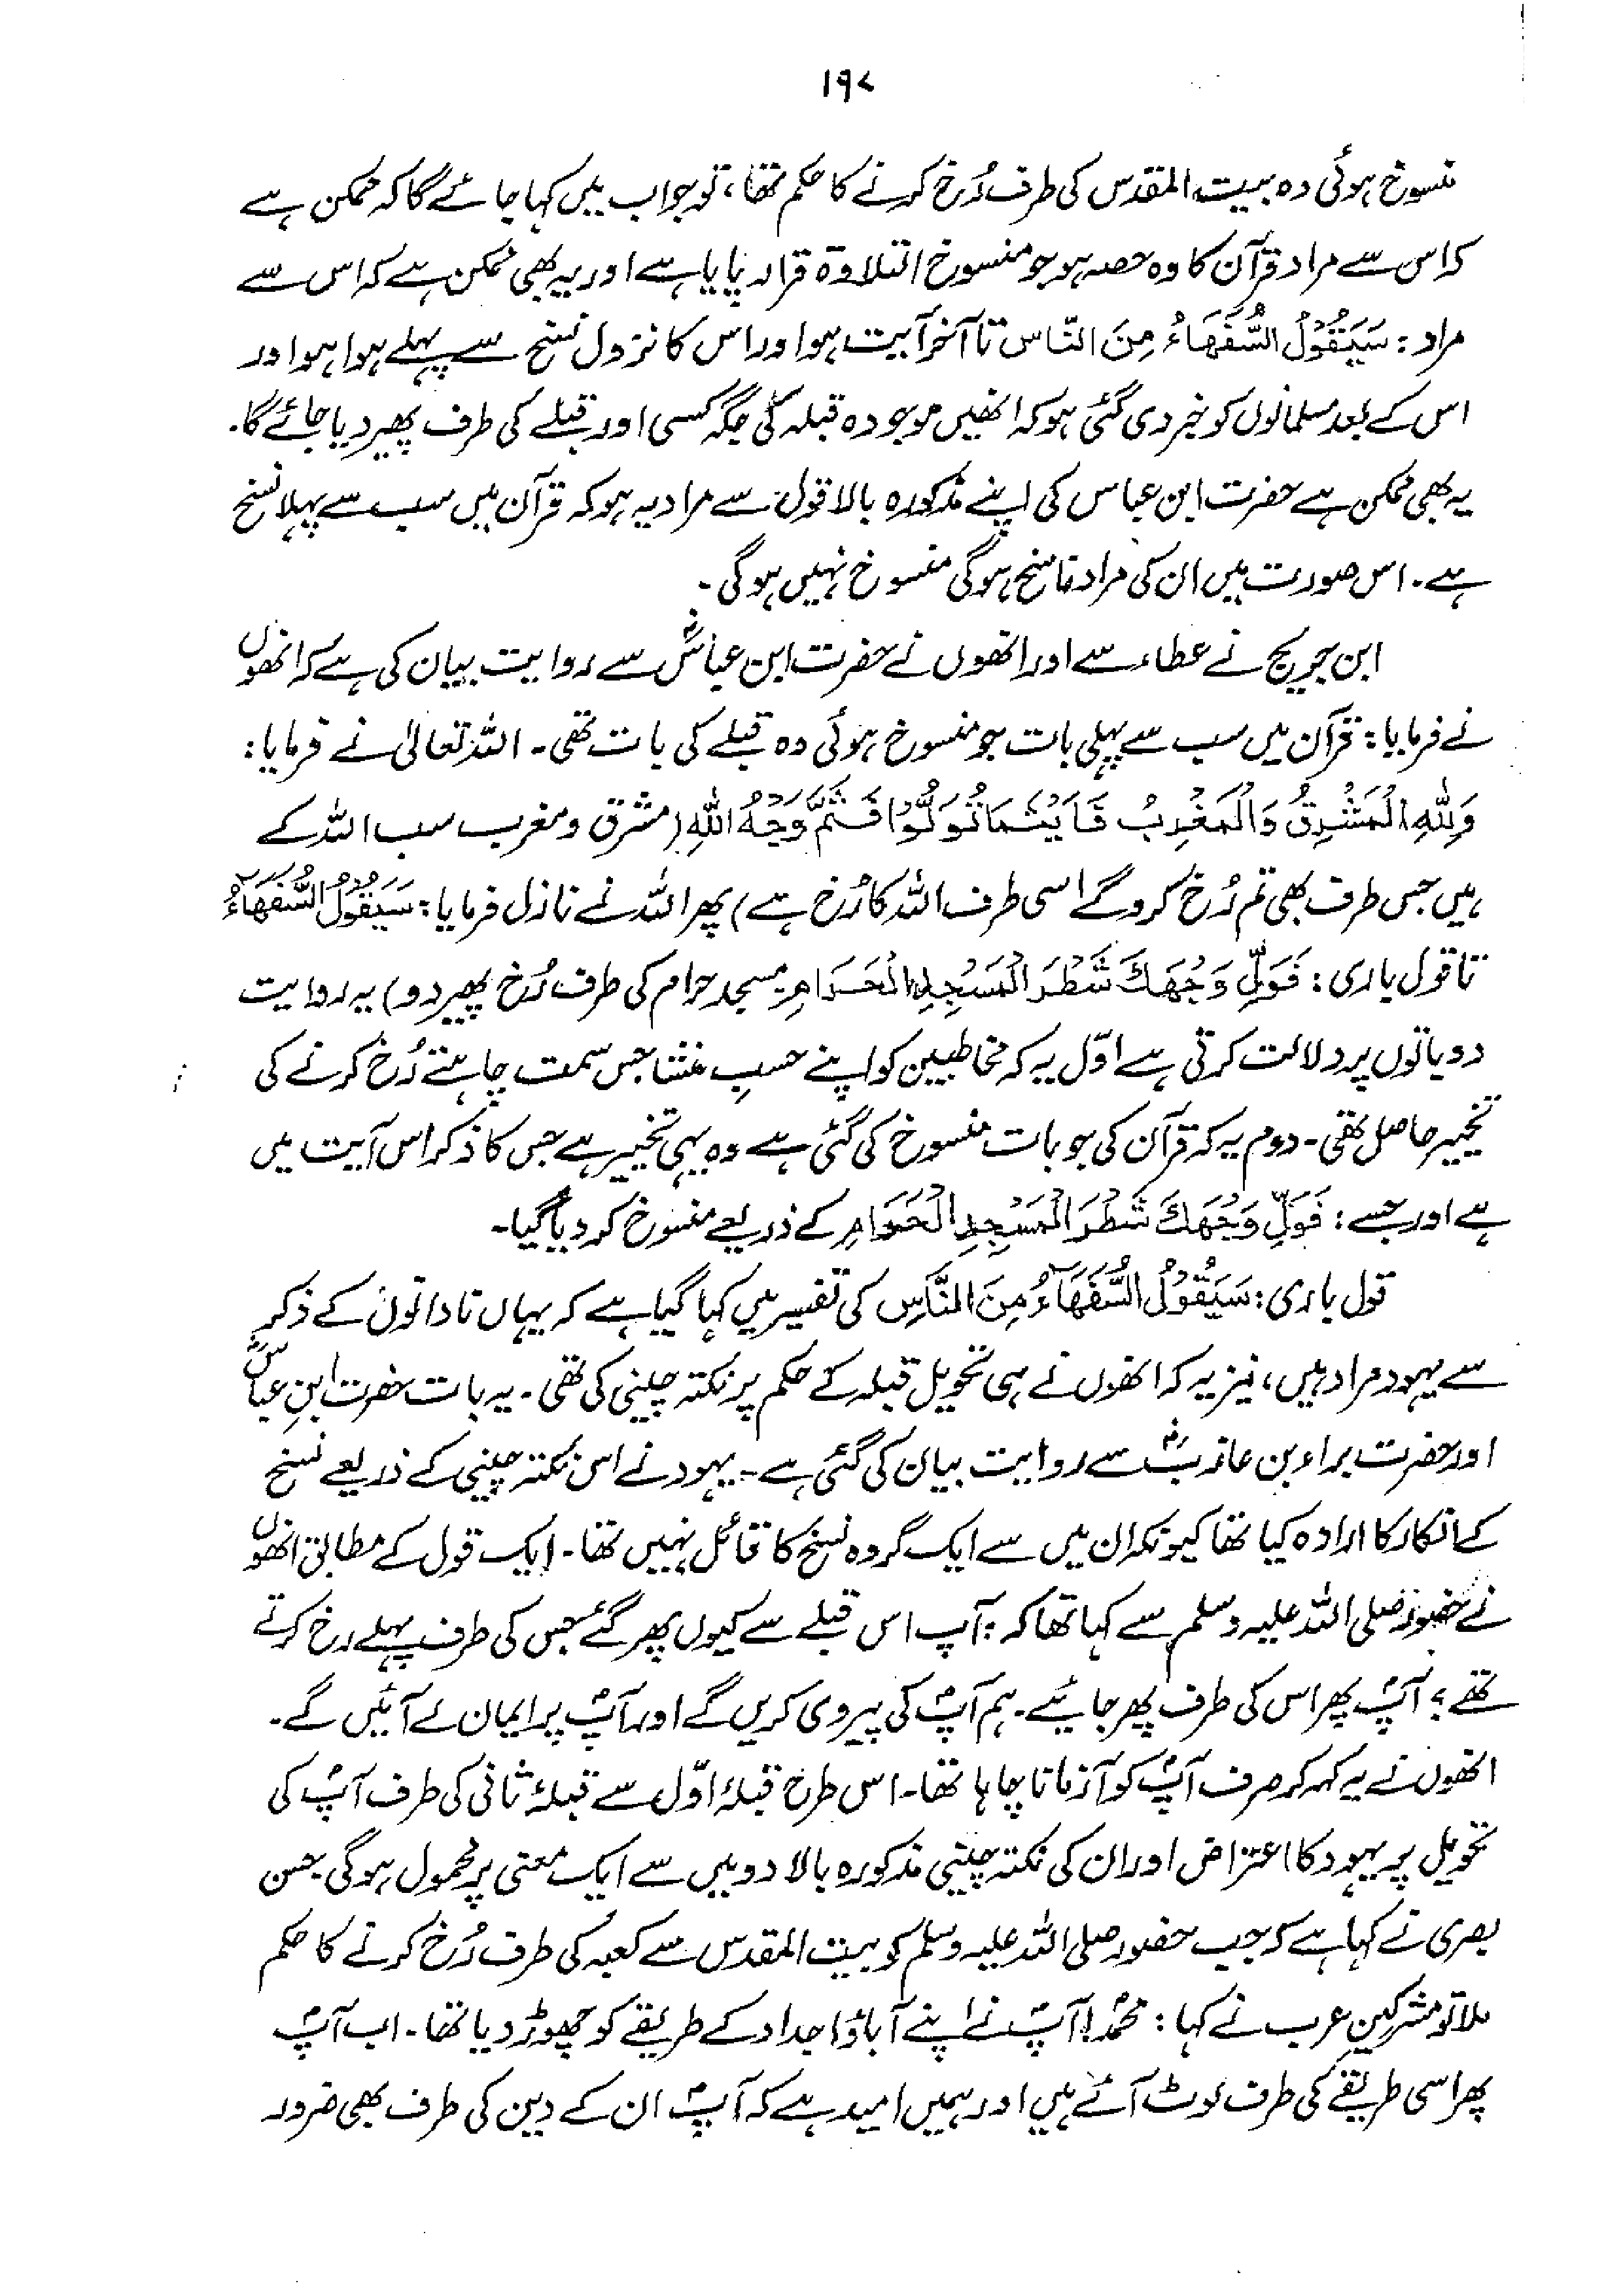 ۱۹۷
منسوخ ہوئی وہ بیت المقدس کی طرف رُخ کرنے کا حکم تھا، تو جواب میں کہا جائے گا کہ ممکن ہے
کہ اس سے مراد قرآن کا وہ حصہ ہو جو منسوخ التلاوۃ قرار پایا ہے اور یہ بھی ممکن ہے کہ اس سے
مراد: سَيَقُوْلُ السُّفَهَاءُ مِنَ النَّاس تا آخر آیت ہو اور اس کا نزول نسخ سے پہلے ہوا ہو اور
اس کے بعد مسلمانوں کو خبر دی گئی ہو کہ انھیں موجودہ قبلہ کی جگہ کسی اور قبلے کی طرف پھیر دیا جائے گا۔
یہ بھی ممکن ہے حضرت ابن عباس کی اپنے مذکورہ بالا قول سے مراد یہ ہو کہ قرآن میں سب سے پہلا نسخ
ہے۔ اس صورت میں ان کی مراد ناسخ ہوگی منسوخ نہیں ہوگی۔
ابن جریج نے عطاء سے اور انھوں نے حضرت ابن عباسؓ سے روایت بیان کی ہے کہ انھوں
نے فرمایا: قرآن میں سب سے پہلی بات جو منسوخ ہوئی وہ قبلے کی بات تھی۔ اللہ تعالیٰ نے فرمایا:
وَلِلّٰهِ الْمَشْرِقُ وَالْمَغْرِبُ فَاَيْنَمَا تُوَلُّوْا فَثَمَّ وَجْهُ اللّٰهِ (مشرق و مغرب سب اللہ کے
ہیں جس طرف بھی تم رُخ کرو گے اسی طرف اللہ کا رُخ ہے) پھر اللہ نے نازل فرمایا: سَيَقُوْلُ السُّفَهَآءُ
تا قول باری: فَوَلِّ وَجْهَكَ شَطْرَ الْمَسْجِدِ الْحَرَامِ (مسجد حرام کی طرف رُخ پھیر دو) یہ روایت
دو باتوں پر دلالت کرتی ہے اوّل یہ کہ مخاطبین کو اپنے حسبِ منشا جس سمت چاہتے رُخ کرنے کی
تخییر حاصل تھی۔ دوم یہ کہ قرآن کی جو بات منسوخ کی گئی ہے وہ یہی تخییر ہے جس کا ذکر اس آیت میں
ہے اور جسے: فَوَلِّ وَجْهَكَ شَطْرَ الْمَسْجِدِ الْحَرَامِ کے ذریعے منسوخ کر دیا گیا۔
قول باری: سَيَقُوْلُ السُّفَهَآءُ مِنَ النَّاسِ کی تفسیر میں کہا گیا ہے کہ یہاں نادانوں کے ذکر
سے یہود مراد ہیں، نیز یہ کہ انھوں نے ہی تحویل قبلہ کے حکم پر نکتہ چینی کی تھی۔ یہ بات حضرت ابنِ عباسؓ
اور حضرت براء بن عازبؓ سے روایت بیان کی گئی ہے۔ یہود نے اس نکتہ چینی کے ذریعے نسخ
کے انکار کا ارادہ کیا تھا کیونکہ ان میں سے ایک گروہ نسخ کا قائل نہیں تھا۔ ایک قول کے مطابق انھوں
نے حضور صلی اللہ علیہ وسلم سے کہا تھا کہ: آپ اس قبلے سے کیوں پھر گئے جس کی طرف پہلے رخ کرتے
تھے؟ آپؐ پھر اس کی طرف پھر جائیے۔ ہم آپؐ کی پیروی کریں گے اور آپؐ پر ایمان لے آئیں گے۔
انھوں نے یہ کہہ کر صرف آپؐ کو آزمانا چاہا تھا۔ اس طرح قبلۂ اوّل سے قبلۂ ثانی کی طرف آپؐ کی
تحویل پر یہود کا اعتراض اور ان کی نکتہ چینی مذکورہ بالا دو میں سے ایک معنی پر محمول ہوگی حسن
بصری نے کہا ہے کہ جب حضور صلی اللہ علیہ وسلم کو بیت المقدس سے کعبہ کی طرف رُخ کرنے کا حکم
ملا تو مشرکینِ عرب نے کہا: محمدؐ! آپؐ نے اپنے آباؤ اجداد کے طریقے کو چھوڑ دیا تھا۔ اب آپؐ
پھر اسی طریقے کی طرف لوٹ آئے ہیں اور ہمیں امید ہے کہ آپؐ ان کے دین کی طرف بھی ضرور